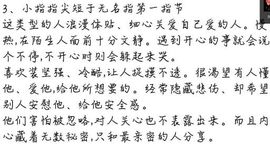 3、小指指尖短于无名指第一指节
这类型的人浪漫体贴、细心关爱自己爱的人。慢
热,在陌生人面前十分文静。遇到开心的事就会说
个不停,不开心时则会躲起来哭。
喜欢装坚强、冷酷,让人捉摸不透。很渴望有人懂
他、爱他,给他所想要的。经常隐藏悲伤、却希望
别人安慰他、给他安全感。
他们害怕被忽略,对人关心也不表露出来。而且内
心藏着无数秘密,只和最亲密的人分享。